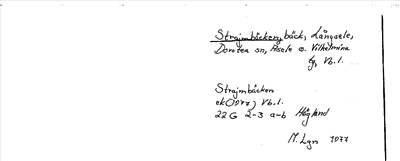 Strajmbäcken, bäck, Långsele,
Dorotea sn, Åsele o. Vilhelmina
tg, Vb.l.
Strajmbäcken
ek(1977) Vb.l.
22G 2-3 a-b Högland
M. Lgn 1977